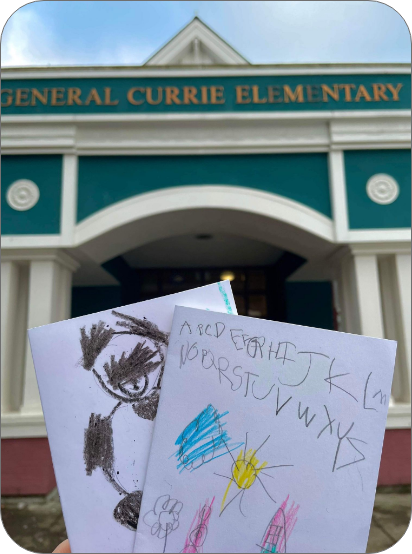 GENERAL CURRIE ELEMENTARY
ABCDEFGHIJKLm
NOPQRSTUVWXYS